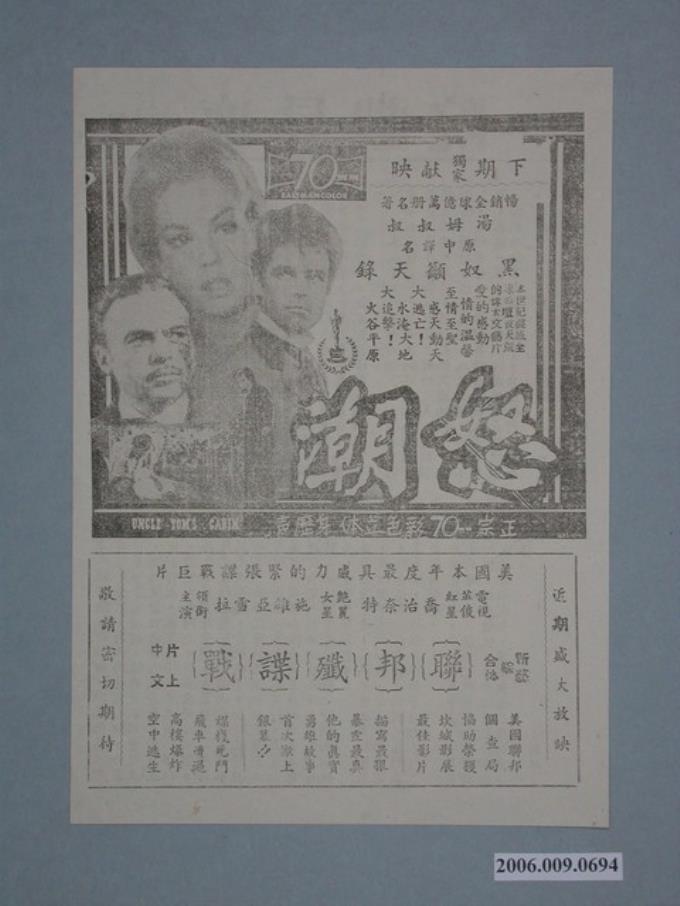 下期獨家獻映
暢銷全球億萬册名著
湯姆叔叔
原中譯名
黑奴籲天錄
愛的感動
情的温馨
至情至聖
感天動天
大逃亡！
水淹大地
大追擊！
火谷平原
70 MM
EASTMANCOLOR
怒潮
UNCLE TOM'S CABIN
正宗70彩色立体身歷聲
近期盛大放映
美國本年度最具威力的緊張諜戰巨片
電視紅星
英俊
喬治奈特
艷麗女星
施雄亞雪拉
領銜主演
新藝綜合体
聯邦殲諜戰
片上中文
美國聯邦
調查局
協助榮獲
坎城影展
最佳影片
描寫最狠
暴露最真
他的真實
勇雄故事
首次獻上
銀幕
諜機死鬥
飛車漕遇
高樓爆炸
空中逃生
敬請密切期待
2006.009.0694